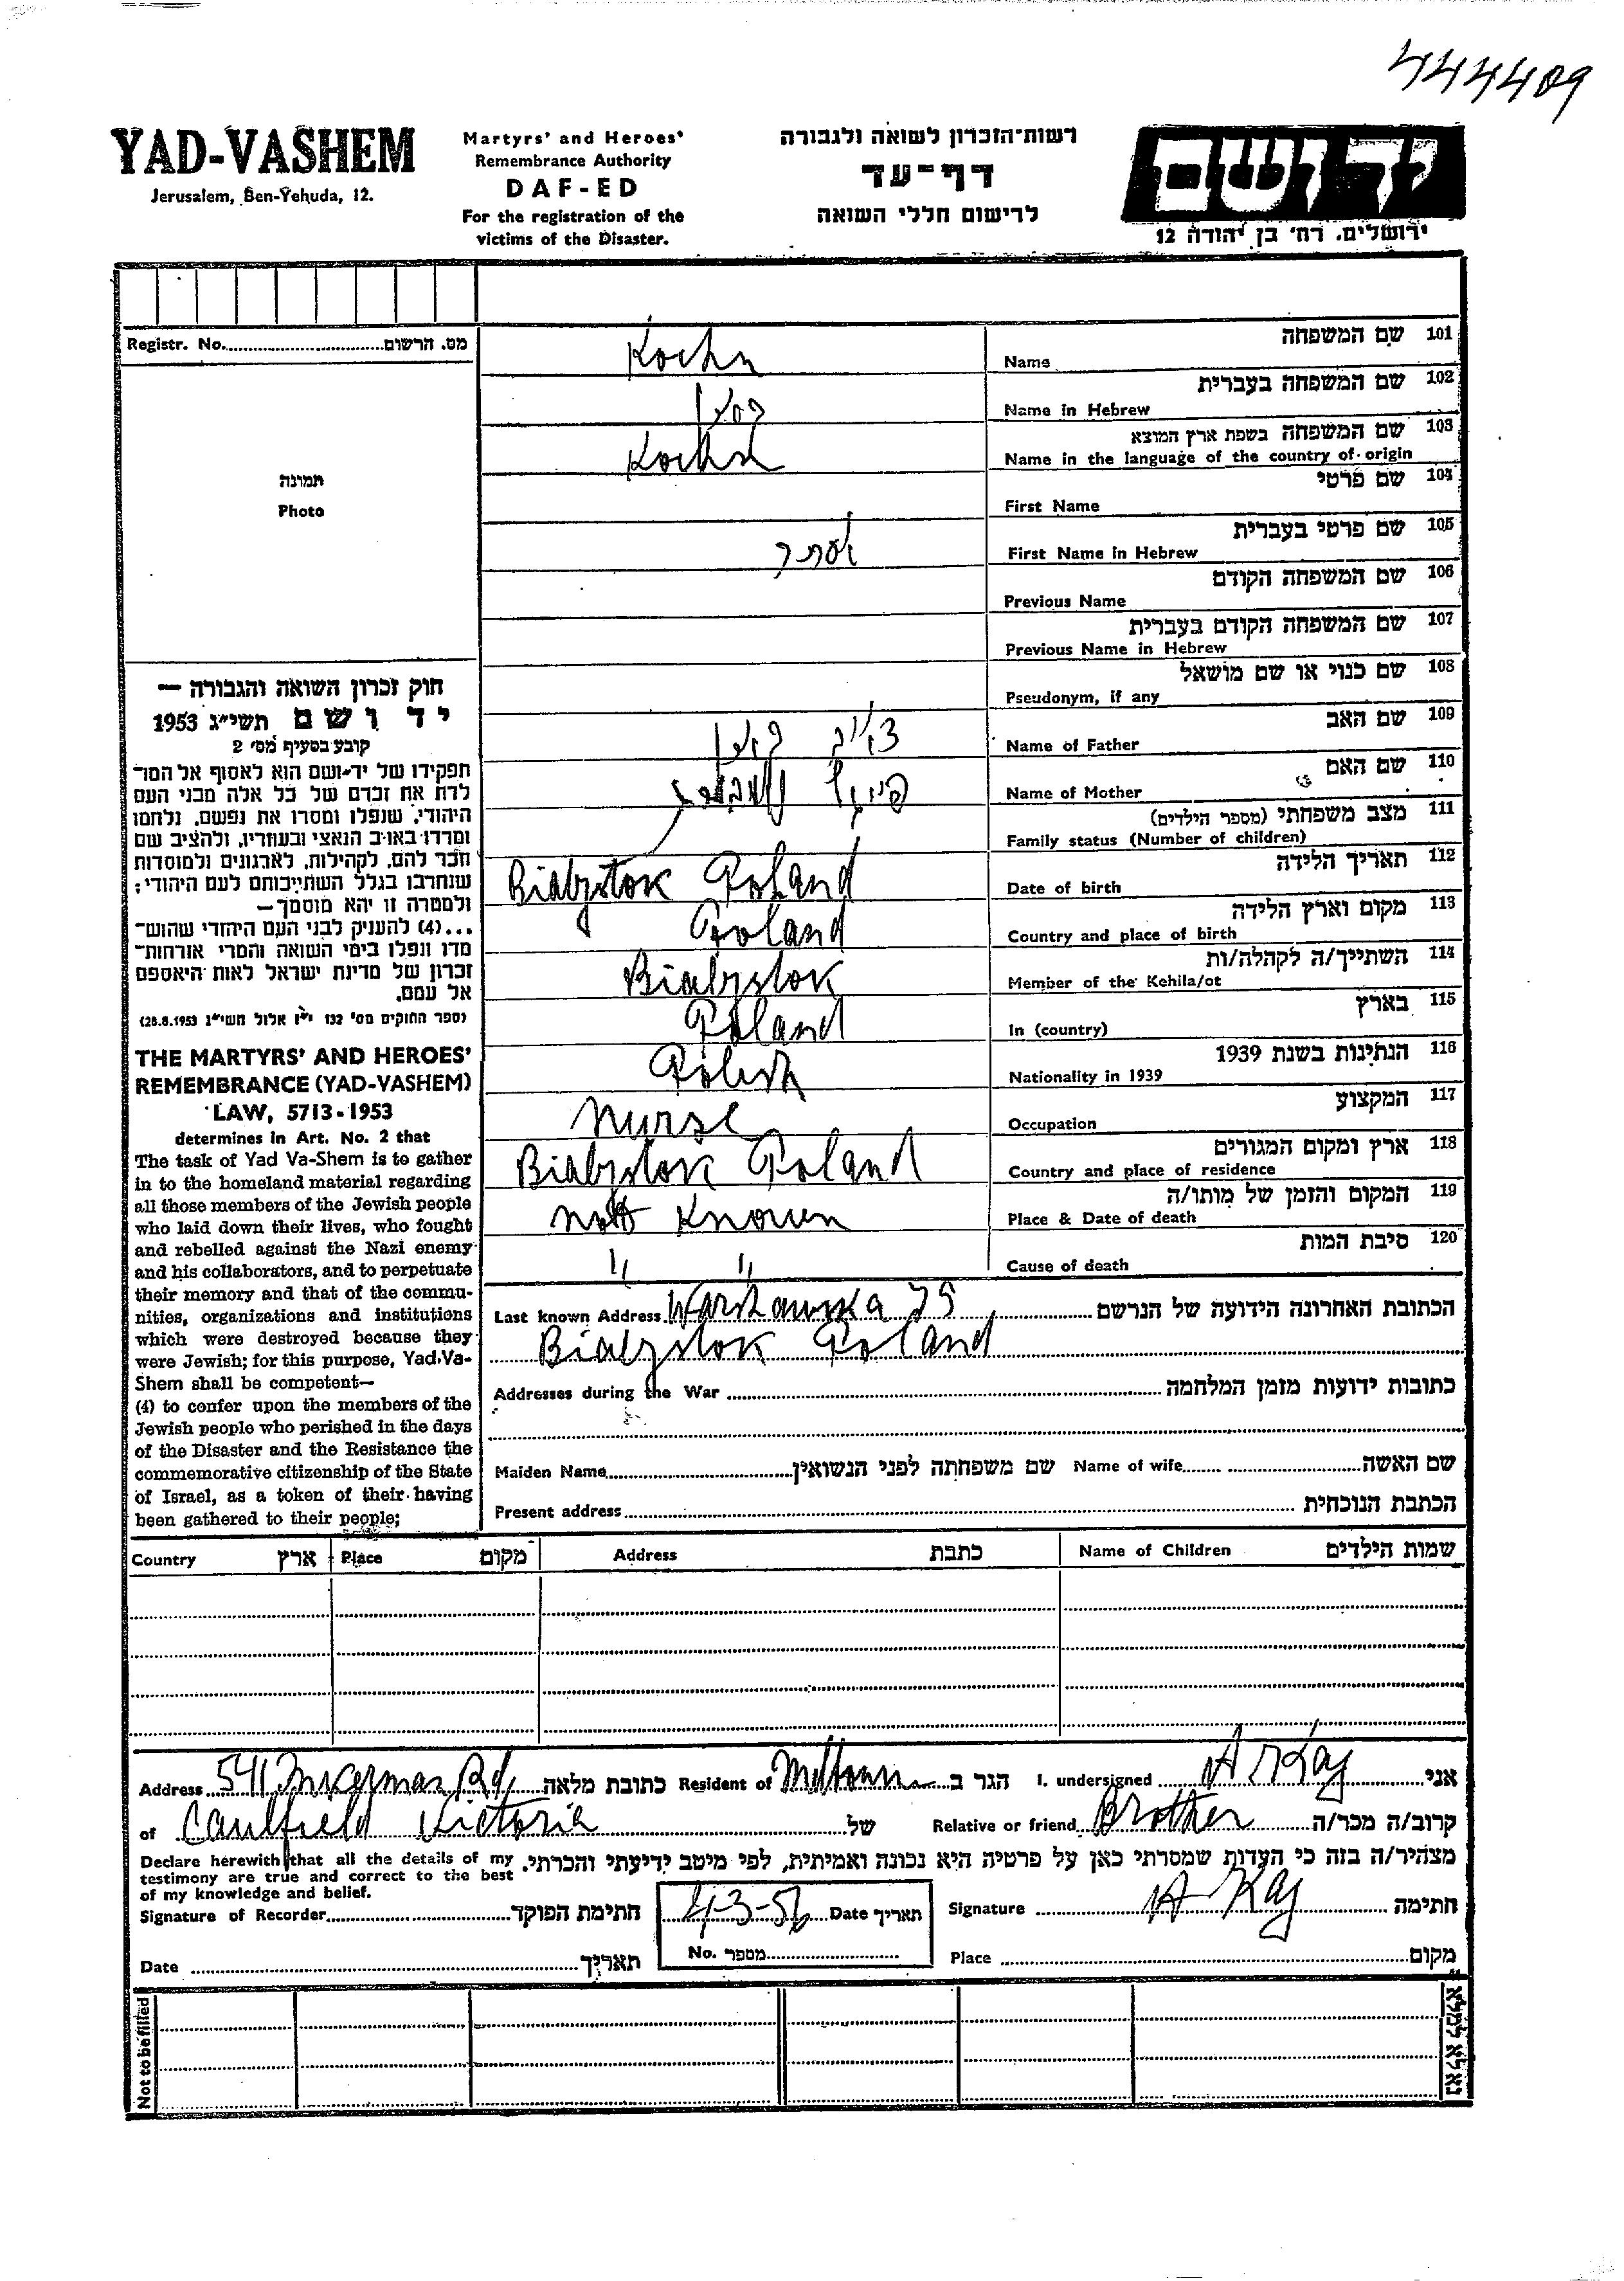 444409
YAD-VASHEM
Jerusalem, Ben-Yehuda, 12.
Martyrs' and Heroes'
Remembrance Authority
DAF-ED
For the registration of the
victims of the Disaster.
רשות-הזכרון לשואה ולגבורה
דף-עד
לרישום חללי השואה
יד ושם
ירושלים, רח' בן יהודה 12
Registr. No. מס. הרשום
תמונה
Photo
חוק זכרון השואה והגבורה —
יד ושם תשי"ג 1953
קובע בסעיף מס' 2
תפקידו של יד-ושם הוא לאסוף אל המו-
לדת את זכרם של כל אלה מבני העם
היהודי, שנפלו ומסרו את נפשם, נלחמו
ומרדו באויב הנאצי ובעוזריו, ולהציב שם
וזכר להם, לקהילות, לארגונים ולמוסדות
שנחרבו בגלל השתייכותם לעם היהודי;
ולמטרה זו יהא מוסמך—
...(4) להעניק לבני העם היהודי שהוש-
מדו ונפלו בימי השואה והמרי אזרחות-
זכרון של מדינת ישראל לאות היאספם
אל עמם.
(ספר החוקים מס' 132 י"ז אלול תשי"ג 28.8.1953)
THE MARTYRS' AND HEROES'
REMEMBRANCE (YAD-VASHEM)
LAW, 5713-1953
determines in Art. No. 2 that
The task of Yad Va-Shem is to gather
in to the homeland material regarding
all those members of the Jewish people
who laid down their lives, who fought
and rebelled against the Nazi enemy
and his collaborators, and to perpetuate
their memory and that of the commu-
nities, organizations and institutions
which were destroyed because they
were Jewish; for this purpose, Yad-Va-
Shem shall be competent—
(4) to confer upon the members of the
Jewish people who perished in the days
of the Disaster and the Resistance the
commemorative citizenship of the State
of Israel, as a token of their having
been gathered to their people;
101 שם המשפחה Name Kochn
102 שם המשפחה בעברית Name in Hebrew
103 שם המשפחה בשפת ארץ המוצא Name in the language of the country of origin Kochn
104 שם פרטי First Name
105 שם פרטי בעברית First Name in Hebrew אסתר
106 שם המשפחה הקודם Previous Name
107 שם המשפחה הקודם בעברית Previous Name in Hebrew
108 שם כנוי או שם מושאל Pseudonym, if any
109 שם האב Name of Father
110 שם האם Name of Mother
111 מצב משפחתי (מספר הילדים) Family status (Number of children)
112 תאריך הלידה Date of birth Bialystok Poland
113 מקום וארץ הלידה Country and place of birth Poland
114 השתייך/ה לקהלה/ות Member of the Kehila/ot Bialystok
115 בארץ In (country) Poland
116 הנתינות בשנת 1939 Nationality in 1939 Polish
117 המקצוע Occupation Nurse
118 ארץ ומקום המגורים Country and place of residence Bialystok Poland
119 המקום והזמן של מותו/ה Place & Date of death nott Known
120 סיבת המות Cause of death " "
Last known Address Warszawska 75 הכתובת האחרונה הידועה של הנרשם
Bialystok Poland
Addresses during the War כתובות ידועות מזמן המלחמה
Maiden Name שם משפחתה לפני הנשואין Name of wife שם האשה
Present address הכתבת הנוכחית
Country ארץ Place מקום Address כתבת Name of Children שמות הילדים
אני A Kay I, undersigned הגר ב Resident of כתובת מלאה Address 541 Inkerman Rd,
קרוב/ה מכר/ה Brother Relative or friend של of Caulfield Victoria
מצהיר/ה בזה כי העדות שמסרתי כאן על פרטיה היא נכונה ואמיתית, לפי מיטב ידיעתי והכרתי.
Declare herewith that all the details of my
testimony are true and correct to the best
of my knowledge and belief.
Signature of Recorder חתימת הפוקד
4-3-56 Date תאריך
Signature A Kay חתימה
No. מספר
Date תאריך
Place מקום
Not to be filled
נא לא למלא